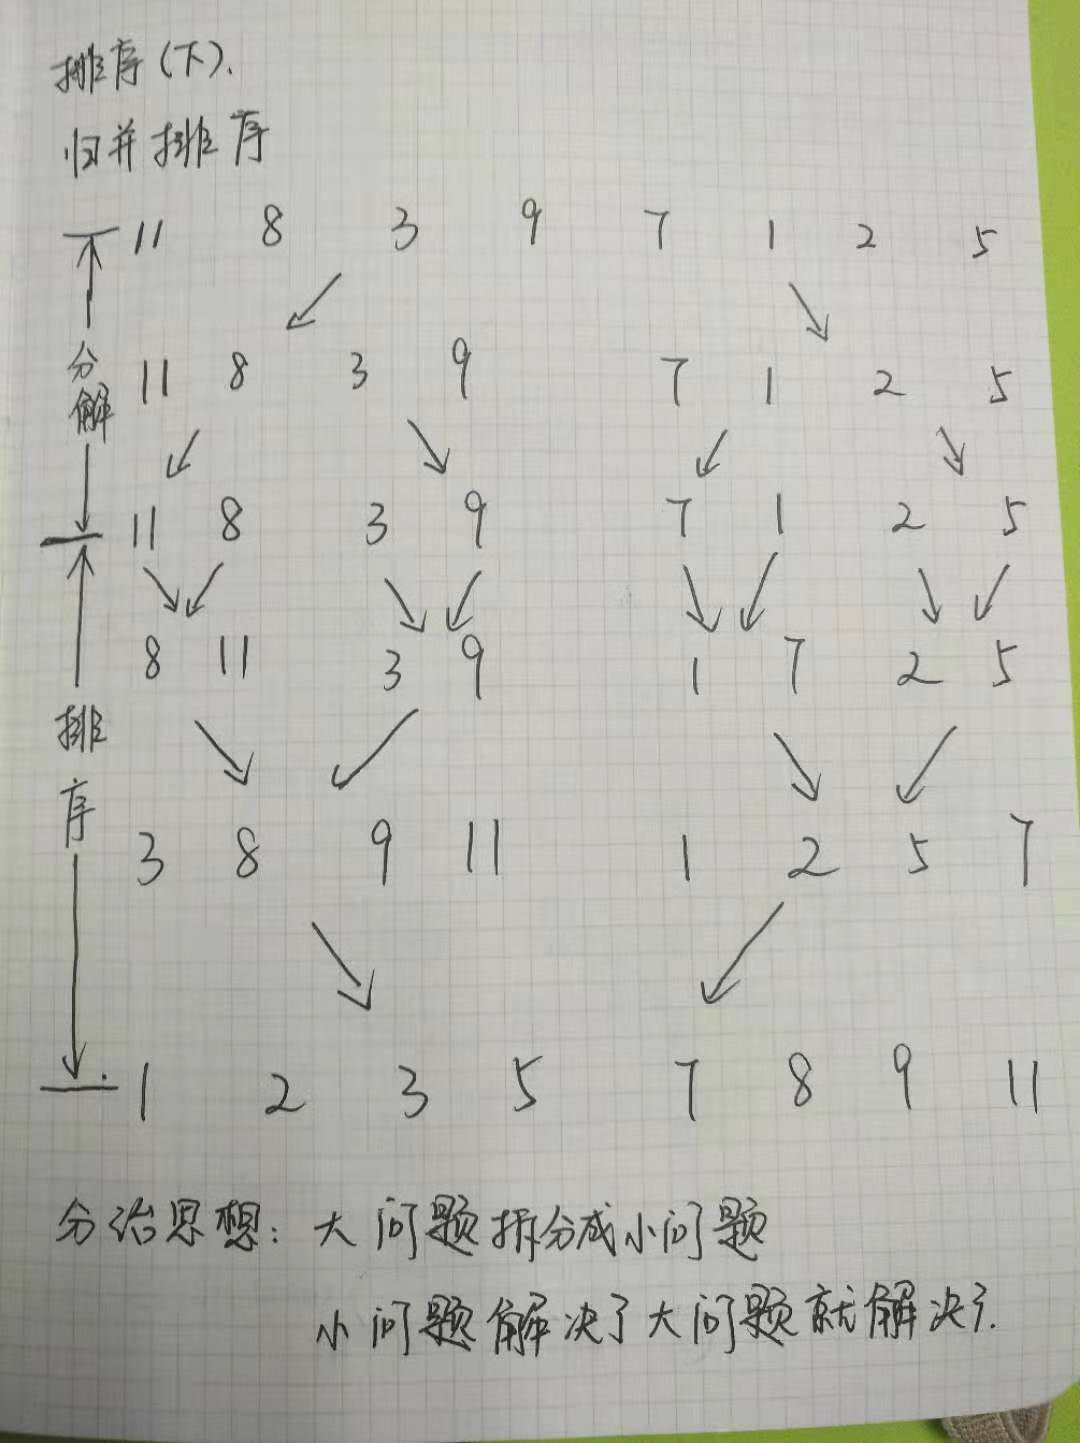 排序(下).
归并排序
11 8 3 9 7 1 2 5
分解
11 8 3 9 7 1 2 5
11 8 3 9 7 1 2 5
8 11 3 9 1 7 2 5
排序
3 8 9 11 1 2 5 7
1 2 3 5 7 8 9 11
分治思想: 大问题拆分成小问题
小问题解决了大问题就解决了.